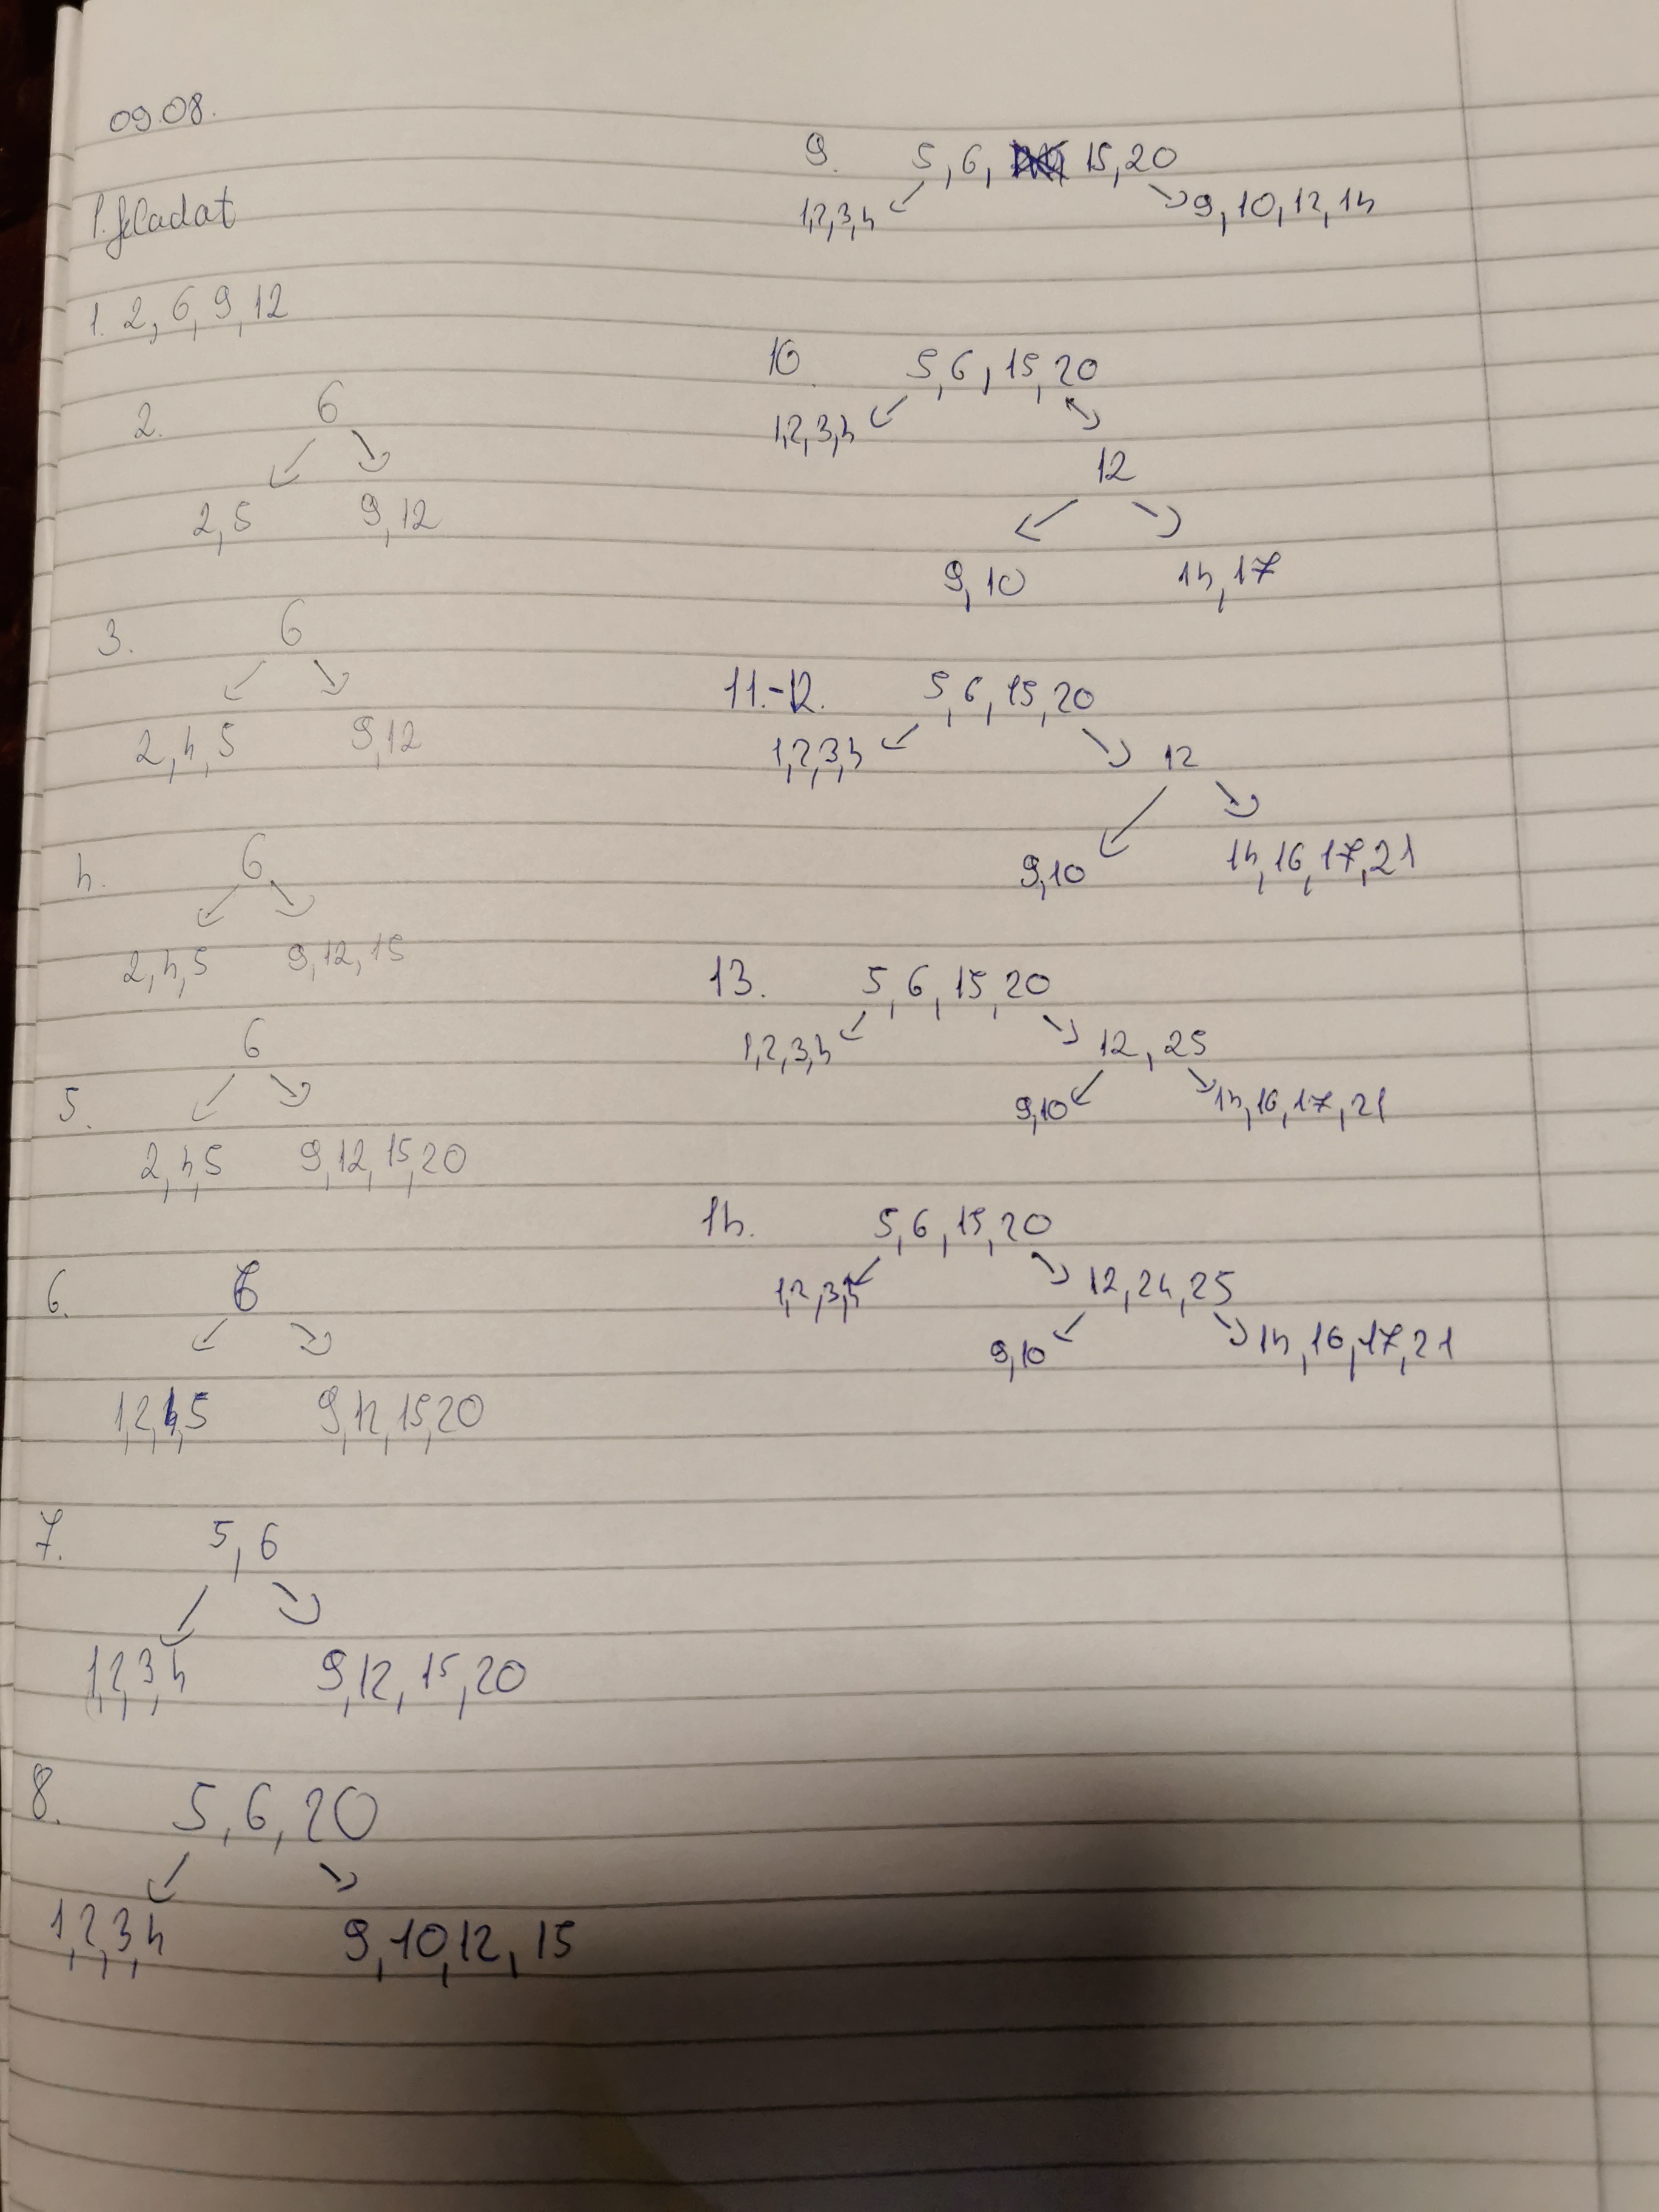 09.08.
1. feladat
1. 2, 6, 9, 12
2. 6
2, 5 9, 12
3. 6
2, 4, 5 9, 12
4. 6
2, 4, 5 9, 12, 15
6
5.
2, 4, 5 9, 12, 15, 20
6. 6
1, 2, 4, 5 9, 12, 15, 20
7. 5, 6
1, 2, 3, 4 9, 12, 15, 20
8. 5, 6, 20
1, 2, 3, 4 9, 10, 12, 15
9. 5, 6, 15, 20
1, 2, 3, 4 9, 10, 12, 14
10. 5, 6, 15, 20
1, 2, 3, 4
12
9, 10 14, 17
11.-12. 5, 6, 15, 20
1, 2, 3, 4 12
9, 10 14, 16, 17, 21
13. 5, 6, 15, 20
1, 2, 3, 4 12, 25
9, 10 14, 16, 17, 21
14. 5, 6, 15, 20
1, 2, 3, 4 12, 24, 25
9, 10 14, 16, 17, 21